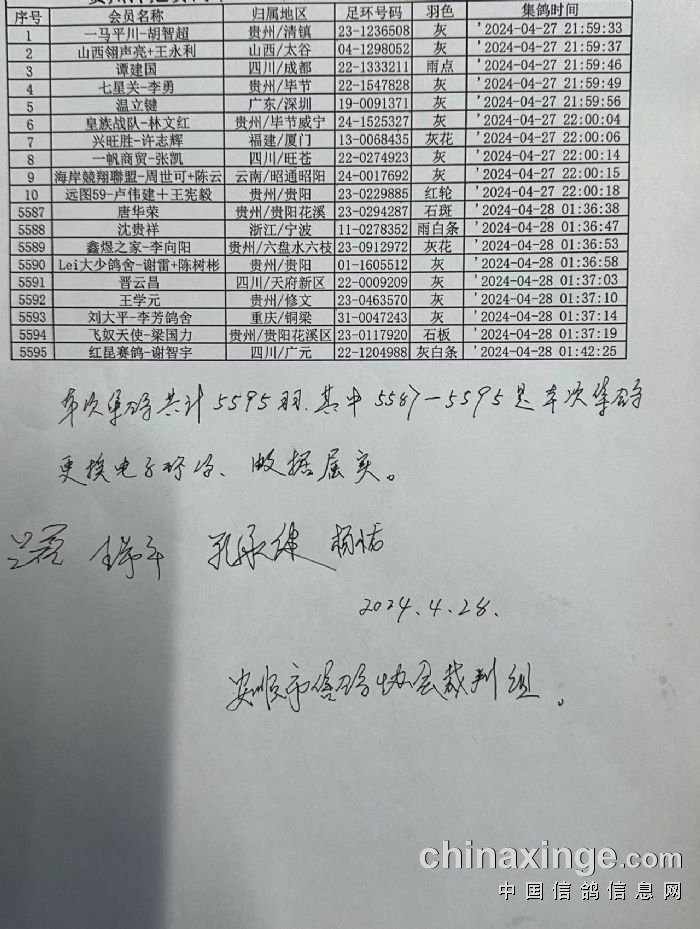 序号 会员名称 归属地区 足环号码 羽色 集鸽时间
1 一马平川-胡智超 贵州/清镇 23-1236508 灰 '2024-04-27 21:59:33
2 山西翎声亮+王永利 山西/太谷 04-1298052 灰 '2024-04-27 21:59:37
3 谭建国 四川/成都 22-1333211 雨点 '2024-04-27 21:59:46
4 七星关-李勇 贵州/毕节 22-1547828 灰 '2024-04-27 21:59:49
5 温立键 广东/深圳 19-0091371 灰 '2024-04-27 21:59:56
6 皇族战队-林文红 贵州/毕节威宁 24-1525327 灰 '2024-04-27 22:00:04
7 兴旺胜-许志辉 福建/厦门 13-0068435 灰花 '2024-04-27 22:00:06
8 一帆商贸-张凯 四川/旺苍 22-0274923 灰 '2024-04-27 22:00:14
9 海岸競翔聯盟-周世可+陈云 云南/昭通昭阳 24-0017692 灰 '2024-04-27 22:00:15
10 远图59-卢伟建+王宪毅 贵州/贵阳 23-0229885 红轮 '2024-04-27 22:00:18
5587 唐华荣 贵州/贵阳花溪 23-0294287 石斑 '2024-04-28 01:36:38
5588 沈贵祥 浙江/宁波 11-0278352 雨白条 '2024-04-28 01:36:47
5589 鑫煜之家-李向阳 贵州/六盘水六枝 23-0912972 灰花 '2024-04-28 01:36:53
5590 Lei大少鸽舍-谢雷+陈树彬 贵州/贵阳 01-1605512 灰 '2024-04-28 01:36:58
5591 晋云昌 四川/天府新区 22-0009209 灰 '2024-04-28 01:37:03
5592 王学元 贵州/修文 23-0463570 灰 '2024-04-28 01:37:10
5593 刘大平-李芳鸽舍 重庆/铜梁 31-0047243 灰 '2024-04-28 01:37:14
5594 飞奴天使-梁国力 贵州/贵阳花溪区 23-0117920 石板 '2024-04-28 01:37:19
5595 红昆赛鸽-谢智宇 四川/广元 22-1204988 灰白条 '2024-04-28 01:42:25
本次集鸽共计5595羽.其中5587-5595是本次集鸽
更换电子环后、数据属实。
孔承健 杨恬
2024.4.28.
安顺市信鸽协会裁判组。
chinaxinge.com
中国信鸽信息网